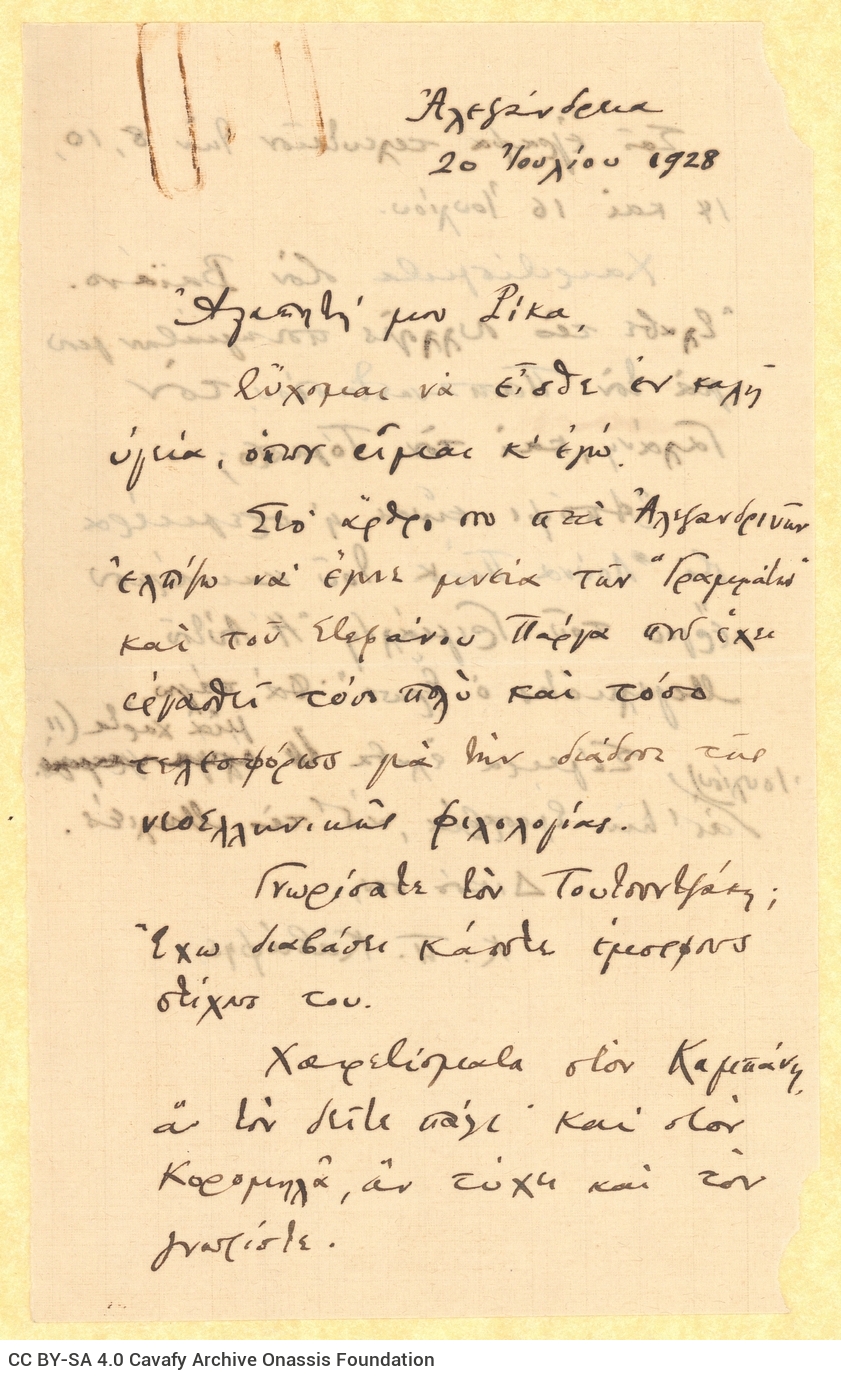 Ἀλεξάνδρεια
20 Ἰουλίου 1928
Ἀγαπητή μου Ρίκα,
Εὔχομαι νὰ εἶσθε ἐν καλῇ
ὑγεία, ὅπως εἶμαι κ' ἐγώ.
Στὸ ἄρθρο σου περὶ Ἀλεξανδρινῶν
ἐλπίζω νὰ ἔγινε μνεία τῶν "Γραμμάτων"
καὶ τοῦ Στεφάνου Πάργα ποὺ ἔχει
ἐργασθεῖ τόσο πολὺ καὶ τόσο
τελεσφόρως γιὰ τὴν διάδοσι τῆς
νεοελληνικῆς φιλολογίας.
Γνωρίσατε τὸν Τουτουντζάκη;
Ἔχω διαβάσει κάποτε ἔμορφους
στίχους του.
Χαιρετίσματα στὸν Καμπάνη,
ἂν τὸν δεῖτε πάλι· καὶ στὸν
Κορομηλᾶ, ἂν τύχει καὶ τὸν
γνωρίστε.
CC BY-SA 4.0 Cavafy Archive Onassis Foundation